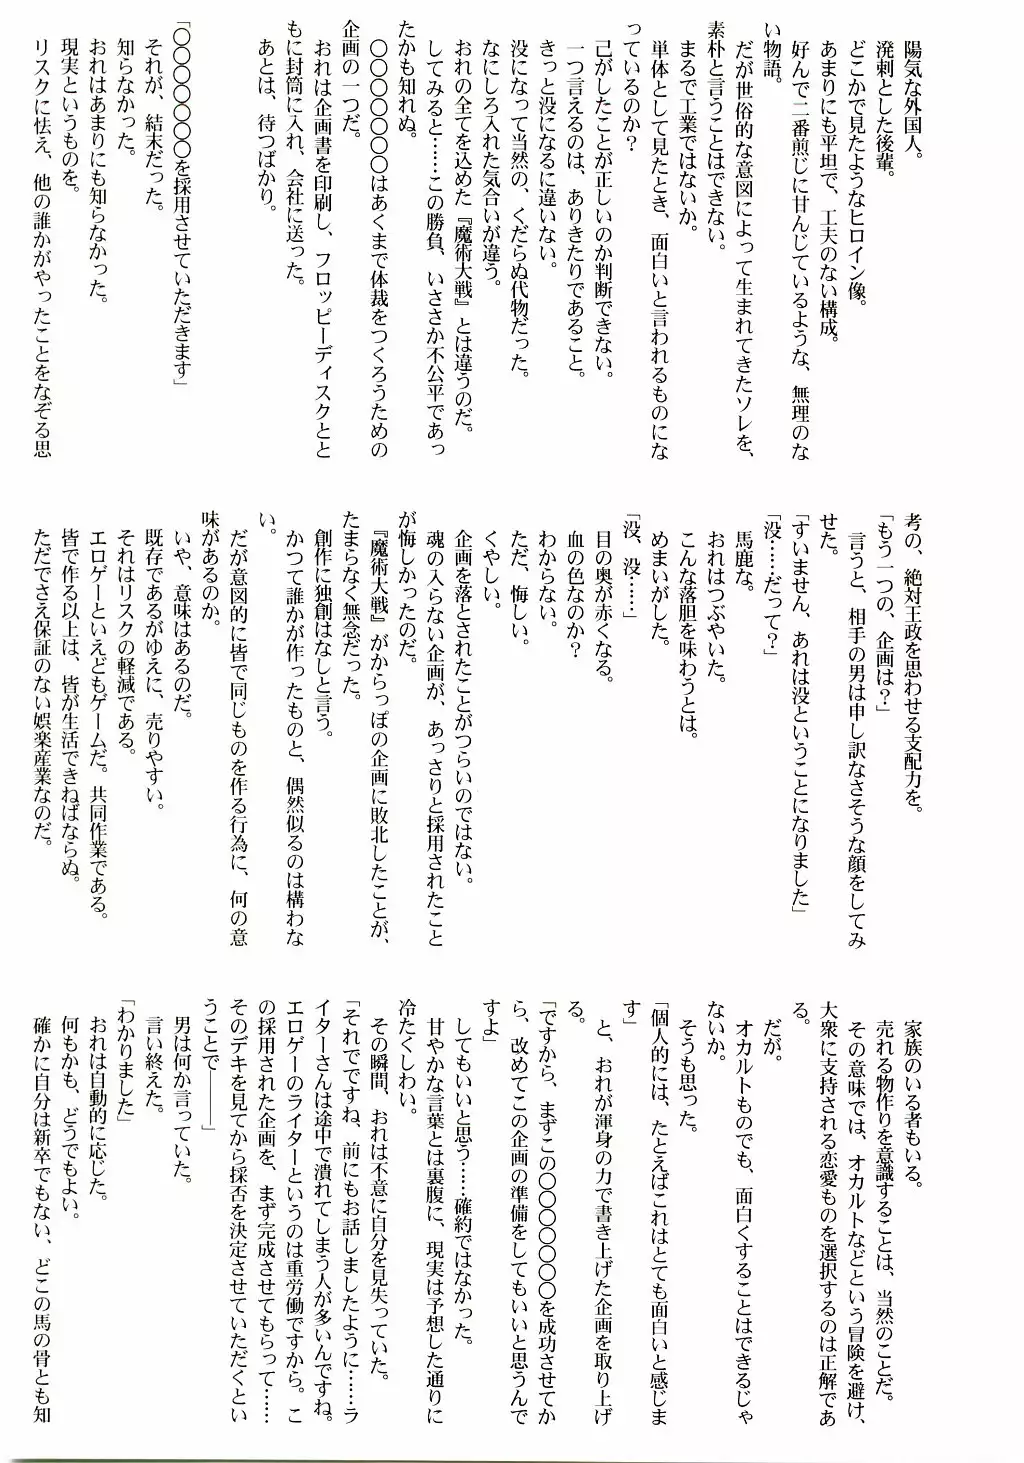 陽気な外国人。
溌剌とした後輩。
どこかで見たようなヒロイン像。
あまりにも平坦で、工夫のない構成。
好んで二番煎じに甘んじているような、無理のな
い物語。
だが世俗的な意図によって生まれてきたソレを、
素朴と言うことはできない。
まるで工業ではないか。
単体として見たとき、面白いと言われるものにな
っているのか？
己がしたことが正しいのか判断できない。
一つ言えるのは、ありきたりであること。
きっと没になるに違いない。
没になって当然の、くだらぬ代物だった。
なにしろ入れた気合いが違う。
おれの全てを込めた『魔術大戦』とは違うのだ。
してみると……この勝負、いささか不公平であっ
たかも知れぬ。
〇〇〇〇〇〇〇はあくまで体裁をつくろうための
企画の一つだ。
おれは企画書を印刷し、フロッピーディスクとと
もに封筒に入れ、会社に送った。
あとは、待つばかり。
「〇〇〇〇〇〇〇を採用させていただきます」
それが、結末だった。
知らなかった。
おれはあまりにも知らなかった。
現実というものを。
リスクに怯え、他の誰かがやったことをなぞる思
考の、絶対王政を思わせる支配力を。
「もう一つの、企画は？」
言うと、相手の男は申し訳なさそうな顔をしてみ
せた。
「すいません、あれは没ということになりました」
「没……だって？」
馬鹿な。
おれはつぶやいた。
こんな落胆を味わうとは。
めまいがした。
「没、没……」
目の奥が赤くなる。
血の色なのか？
わからない。
ただ、悔しい。
くやしい。
企画を落とされたことがつらいのではない。
魂の入らない企画が、あっさりと採用されたこと
が悔しかったのだ。
『魔術大戦』がからっぽの企画に敗北したことが、
たまらなく無念だった。
創作に独創はなしと言う。
かつて誰かが作ったものと、偶然似るのは構わな
い。
だが意図的に皆で同じものを作る行為に、何の意
味があるのか。
いや、意味はあるのだ。
既存であるがゆえに、売りやすい。
それはリスクの軽減である。
エロゲーといえどもゲームだ。共同作業である。
皆で作る以上は、皆が生活できねばならぬ。
ただでさえ保証のない娯楽産業なのだ。
家族のいる者もいる。
売れる物作りを意識することは、当然のことだ。
その意味では、オカルトなどという冒険を避け、
大衆に支持される恋愛ものを選択するのは正解であ
る。
だが。
オカルトものでも、面白くすることはできるじゃ
ないか。
そうも思った。
「個人的には、たとえばこれはとても面白いと感じま
す」
と、おれが渾身の力で書き上げた企画を取り上げ
る。
「ですから、まずこの〇〇〇〇〇〇〇を成功させてか
ら、改めてこの企画の準備をしてもいいと思うんで
すよ」
してもいいと思う……確約ではなかった。
甘やかな言葉とは裏腹に、現実は予想した通りに
冷たくしわい。
その瞬間、おれは不意に自分を見失っていた。
「それでですね、前にもお話しましたように……ラ
イターさんは途中で潰れてしまう人が多いんですね。
エロゲーのライターというのは重労働ですから。こ
の採用された企画を、まず完成させてもらって……
そのデキを見てから採否を決定させていただくとい
うことで――――」
男は何か言っていた。
言い終えた。
「わかりました」
おれは自動的に応じた。
何もかも、どうでもよい。
確かに自分は新卒でもない、どこの馬の骨とも知